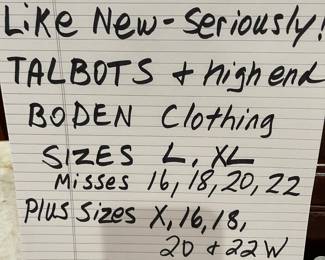 Like New-Seriously!
TALBOTS + high end
BODEN Clothing
SIZES L, XL
Misses 16, 18, 20, 22
Plus Sizes X, 16, 18,
20 & 22 W